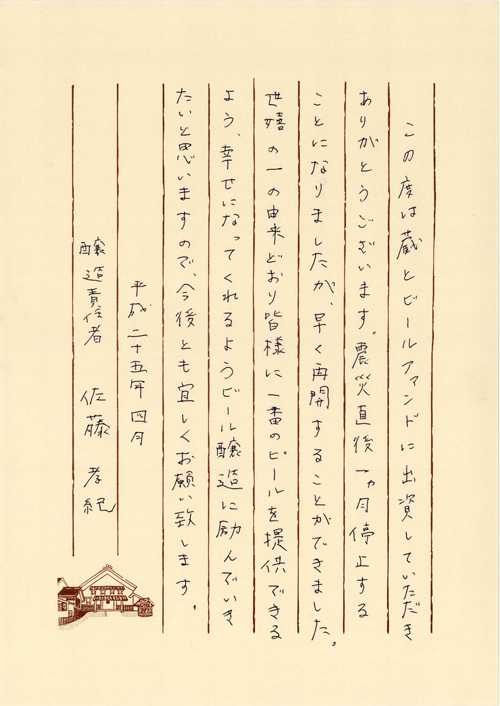 この度は蔵とビールファンドに出資していただき
ありがとうございます。震災直後一ヵ月停止する
ことになりましたが、早く再開することができました。
世嬉の一の由来どおり皆様に一番のビールを提供できる
よう、幸せになってくれるようビール醸造に励んでいき
たいと思いますので、今後とも宜しくお願い致します。
平成二十五年四月
醸造責任者 佐藤孝紀